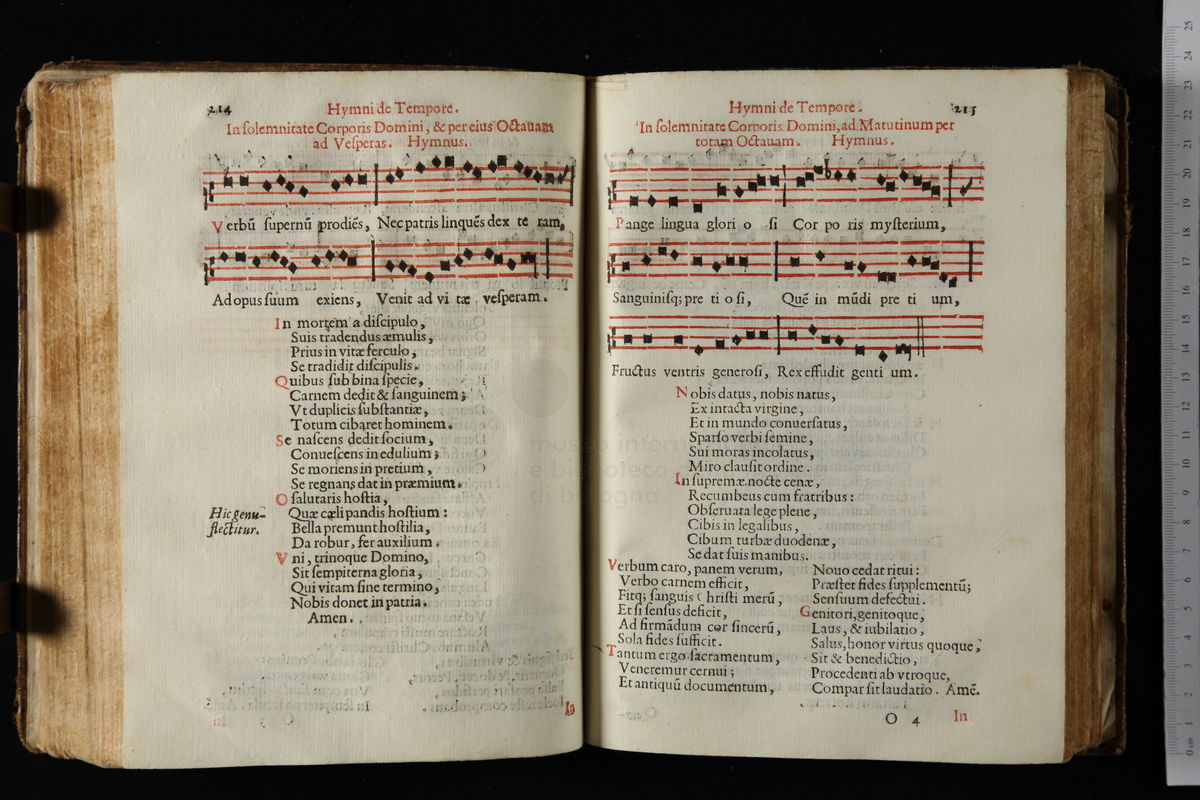 214
Hymni de Tempore.
In solemnitate Corporis Domini, & per eius Octauam
ad Vesperas. Hymnus.
Verbū supernū prodiēs, Nec patris linquēs dex te ram,
Ad opus suum exiens, Venit ad vi tæ vesperam.
In mortem a discipulo,
Suis tradendus æmulis,
Prius in vitæ ferculo,
Se tradidit discipulis.
Quibus sub bina specie,
Carnem dedit & sanguinem;
Vt duplicis substantiæ,
Totum cibaret hominem.
Se nascens dedit socium,
Conuescens in edulium;
Se moriens in pretium,
Se regnans dat in præmium.
O salutaris hostia,
Quæ cæli pandis hostium:
Hic genu-
flectitur.
Bella premunt hostilia,
Da robur, fer auxilium.
Vni, trinoque Domino,
Sit sempiterna gloria,
Qui vitam sine termino,
Nobis donet in patria.
Amen.
In
Hymni de Tempore.
215
In solemnitate Corporis Domini, ad Matutinum per
totam Octauam. Hymnus.
Pange lingua glori o si Cor po ris mysterium,
Sanguinisq; pre ti o si, Quē in mūdi pre ti um,
Fructus ventris generosi, Rex effudit genti um.
Nobis datus, nobis natus,
Ex intacta virgine,
Et in mundo conuersatus,
Sparso verbi semine,
Sui moras incolatus,
Miro clausit ordine.
In supremæ nocte cenæ,
Recumbeus cum fratribus:
Obseruata lege plene,
Cibis in legalibus,
Cibum turbæ duodenæ,
Se dat suis manibus.
Verbum caro, panem verum,
Verbo carnem efficit,
Fitq; sanguis Christi merū,
Et si sensus deficit,
Ad firmādum cor sincerū,
Sola fides sufficit.
Tantum ergo sacramentum,
Veneremur cernui;
Et antiquū documentum,
Nouo cedat ritui:
Præstet fides supplementū;
Sensuum defectui.
Genitori, genitoque,
Laus, & iubilatio,
Salus, honor virtus quoque,
Sit & benedictio,
Procedenti ab vtroque,
Compar sit laudatio. Amē.
O 4
In